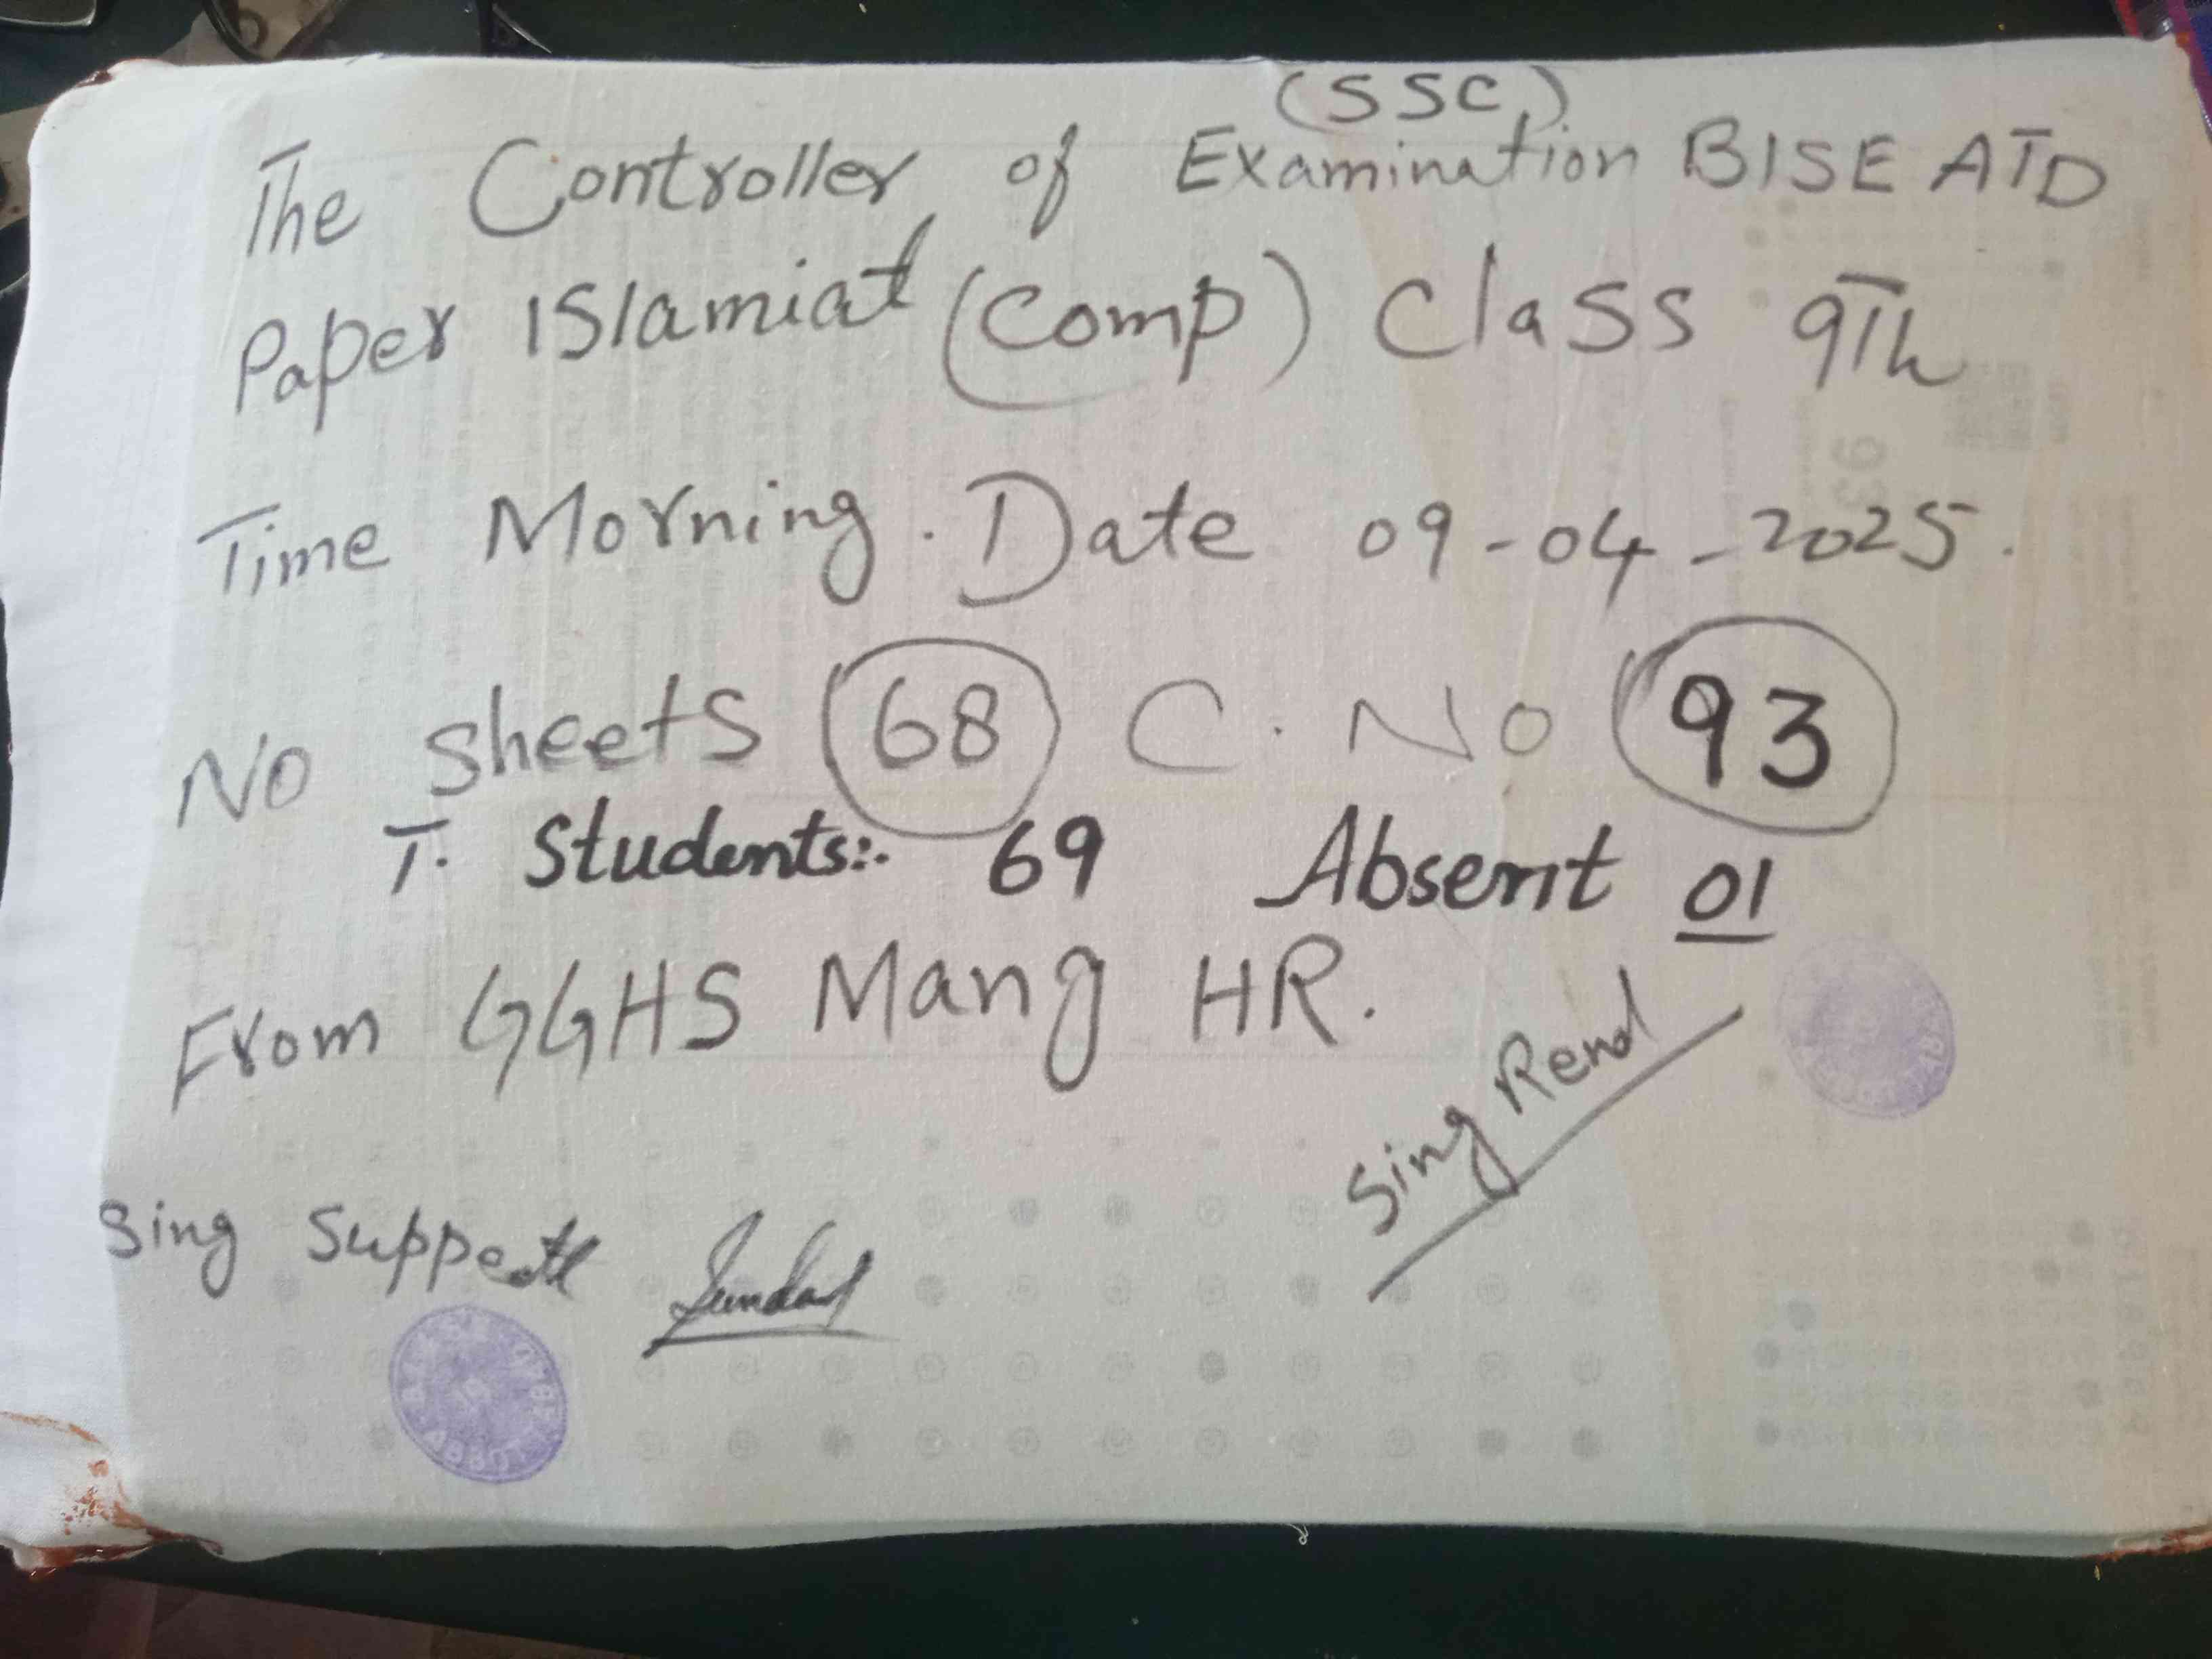 (SSC)
The Controller of Examination BISE ATD
Paper Islamiat (Comp) Class 9Th
Time Morning. Date 09-04-2025.
No Sheets 68 C. No 93
T. Students:. 69 Absent 01
From GGHS Mang HR.
Sing Rend
Sing
93